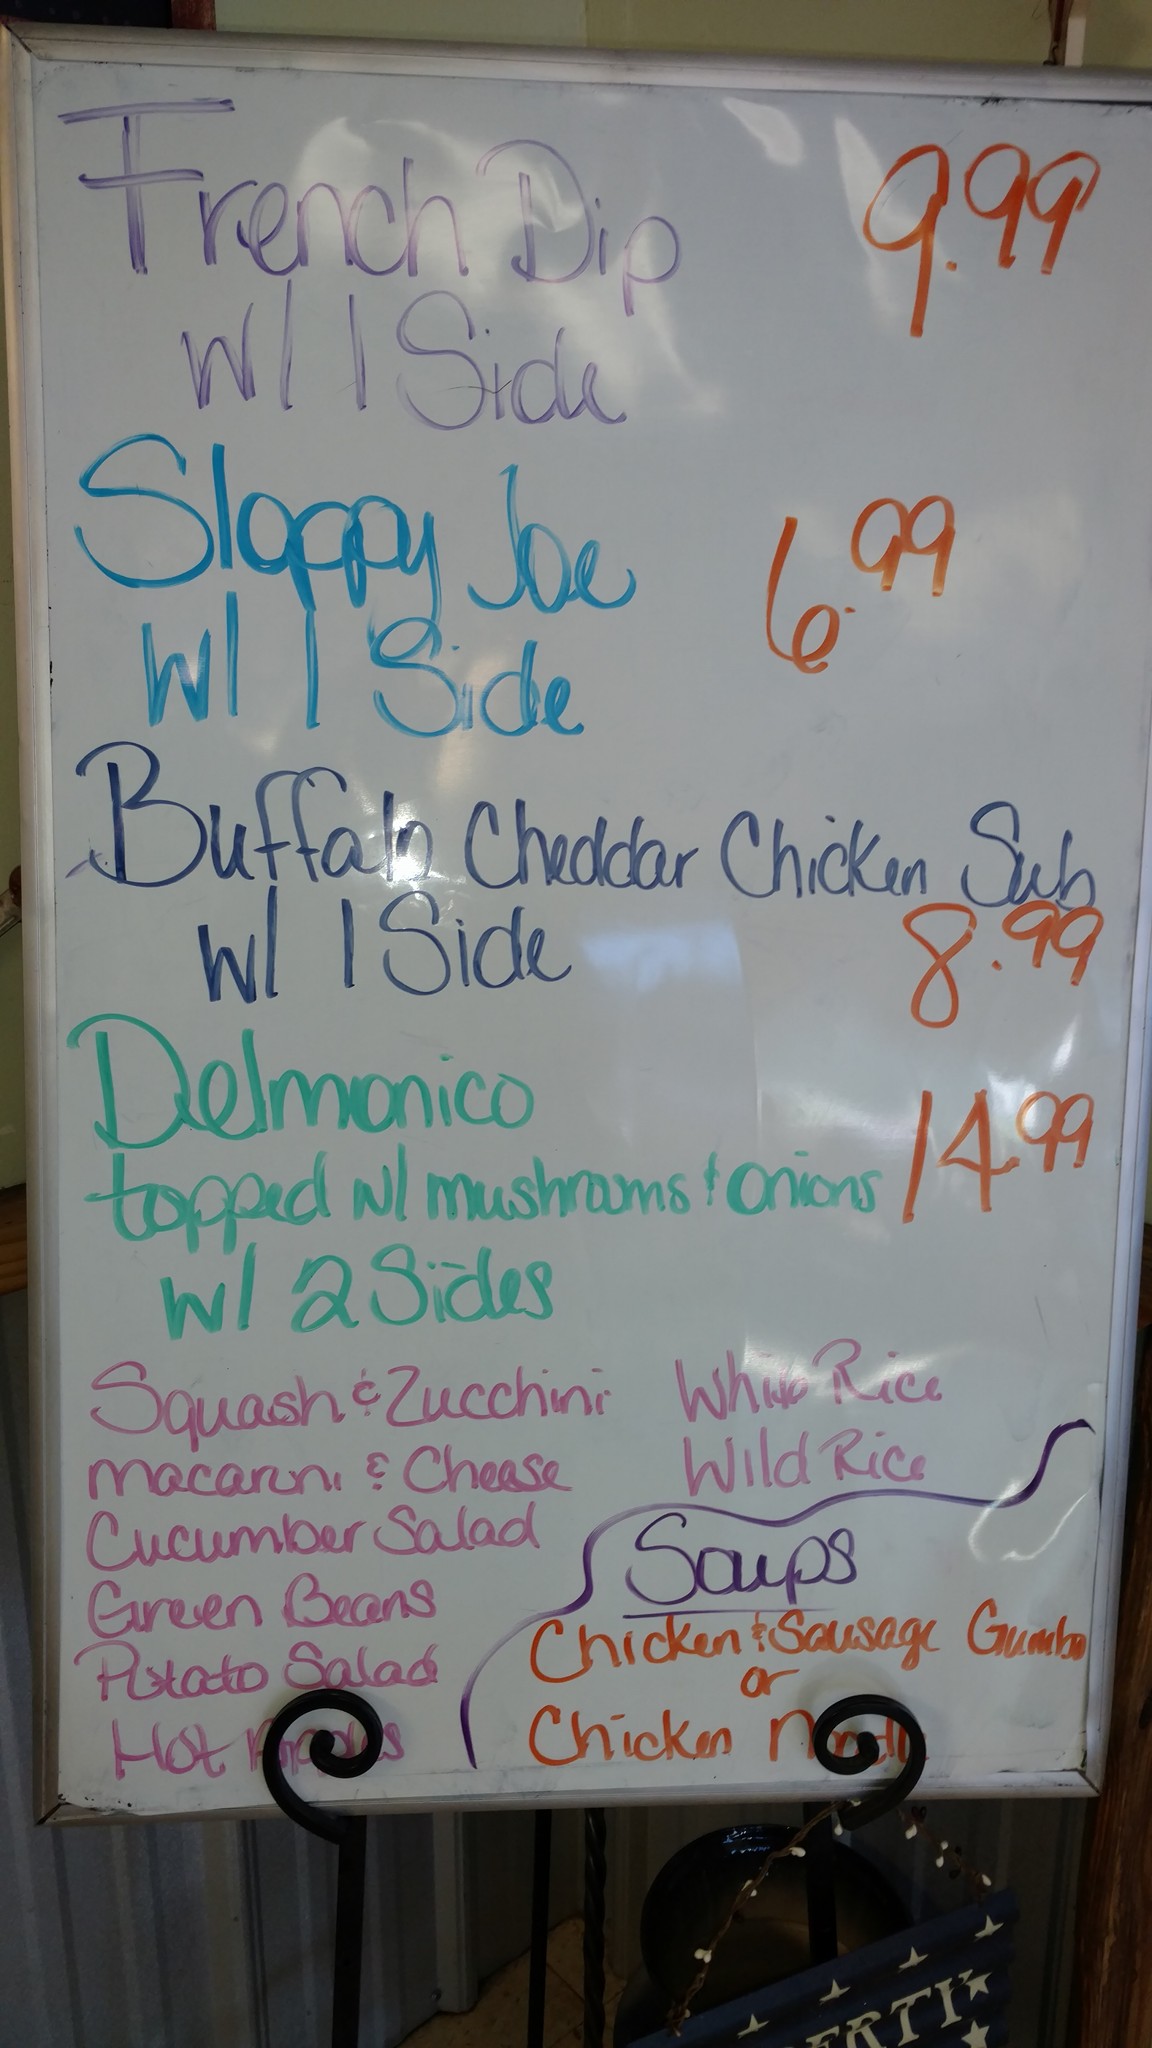 French Dip 9.99
w/ 1 Side
Sloppy Joe 6.99
w/ 1 Side
Buffalo Cheddar Chicken Sub
w/ 1 Side 8.99
Delmonico 14.99
topped w/ mushrooms & onions
w/ 2 Sides
Squash & Zucchini
Macaroni & Cheese
Cucumber Salad
Green Beans
Potato Salad
Hot Apples
White Rice
Wild Rice
Soups
Chicken & Sausage Gumbo
or
Chicken Noodle